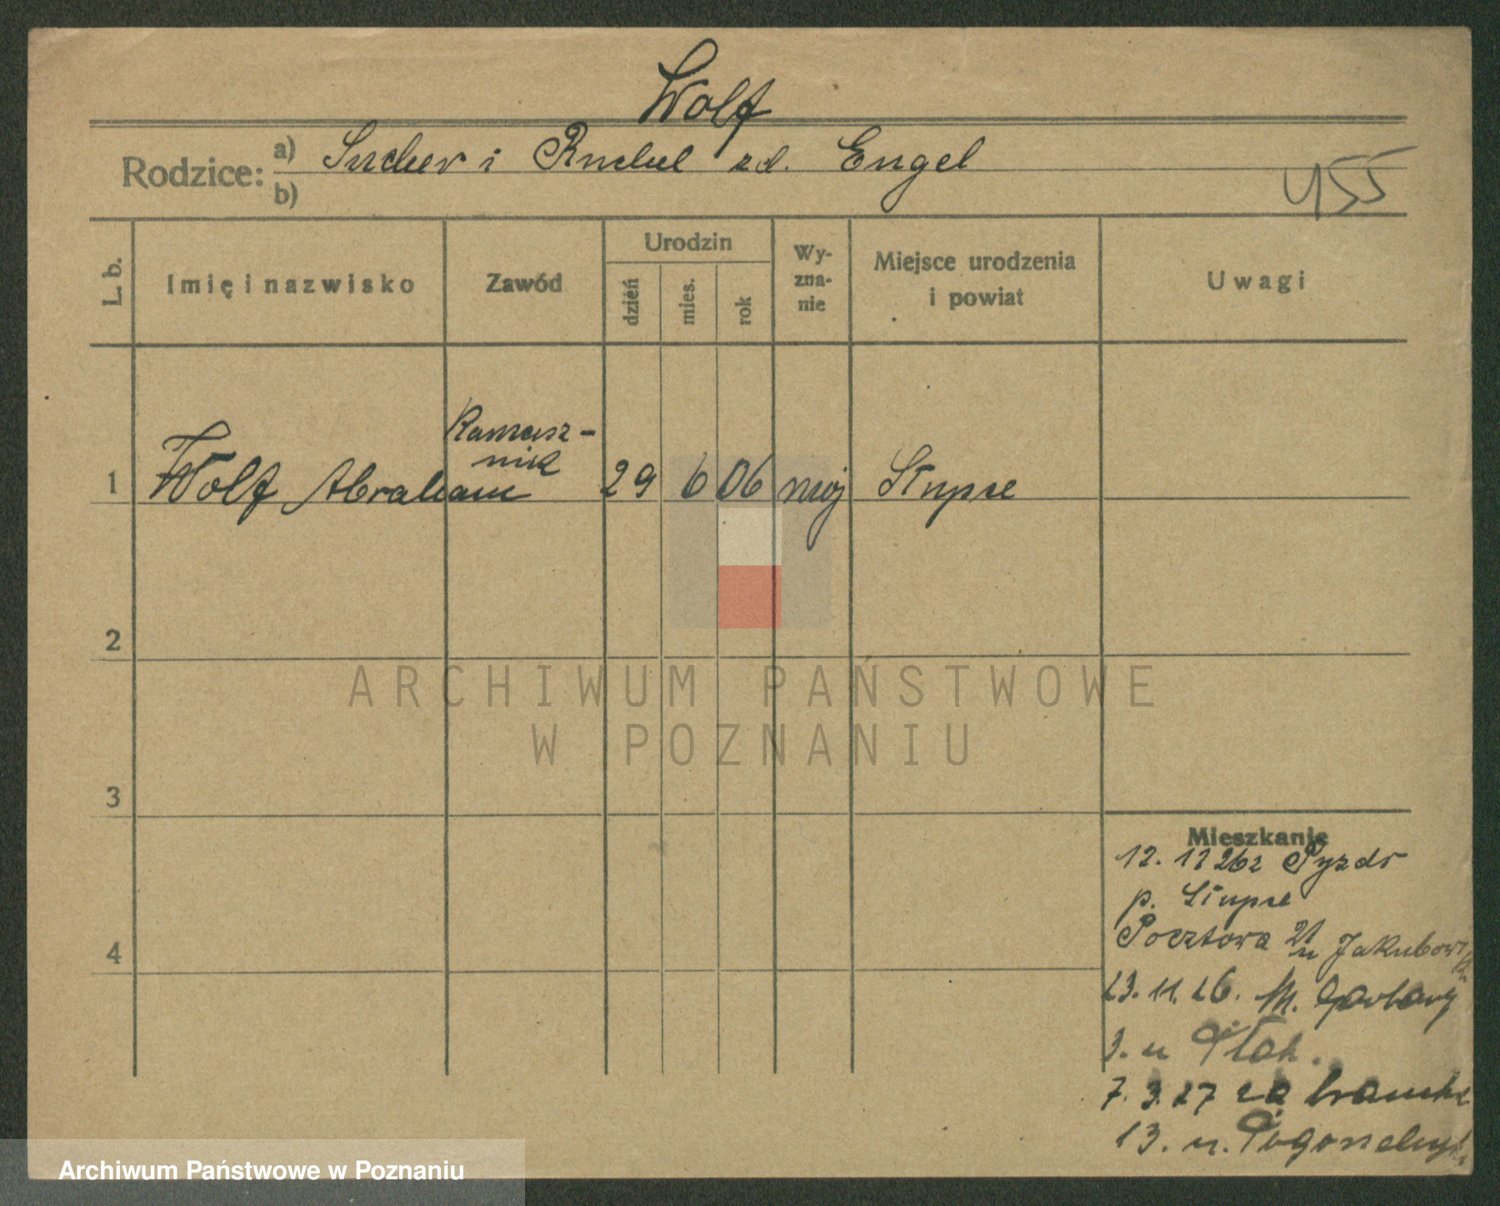 Wolf
Rodzice: a) Sucher i Ruchel zd. Engel
b)
455
L. b.
Imię i nazwisko
Zawód
Urodzin
dzień
mies.
rok
Wy-
zna-
nie
Miejsce urodzenia
i powiat
Uwagi
Kamasz-
nik
1 Wolf Abraham 29 6 06 moj Słupce
2
3
4
Mieszkanie
12. 11 26 z Pyzdr
p. Słupce
Pocztowa 21 u Jakubow
23. 11. 26. M. Garbary
3. u
7. 3. 27 za bramką
13. u.
ARCHIWUM PAŃSTWOWE
W POZNANIU
Archiwum Państwowe w Poznaniu